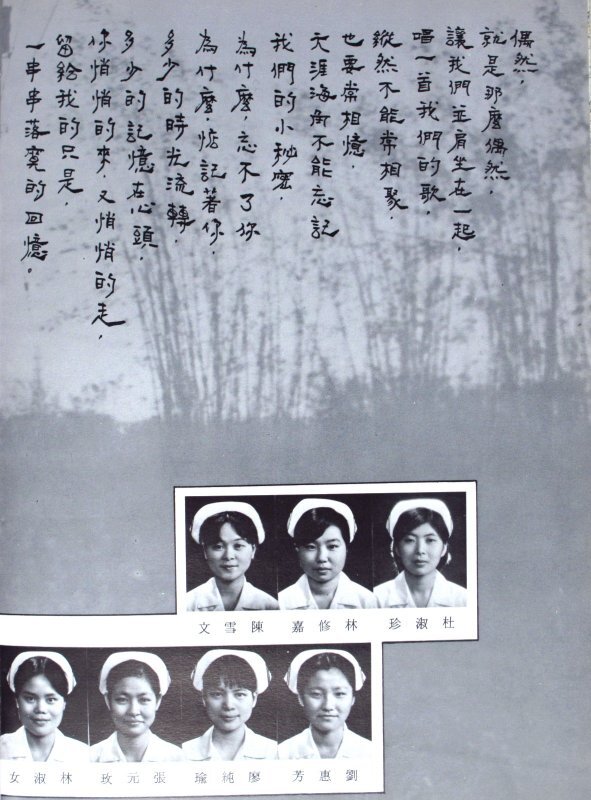 偶然，
就是那麼偶然，
讓我們並肩坐在一起，
唱一首我們的歌，
縱然不能常相聚，
也要常相憶，
天涯海角不能忘記
我們的小秘密，
為什麼，忘不了你
為什麼，惦記著你，
多少的時光流轉，
多少的記憶在心頭，
你悄悄的來，又悄悄的走，
留給我的只是，
一串串落寞的回憶。
杜淑珍
林修嘉
陳雪文
劉惠芳
廖純瑜
張元玫
林淑女